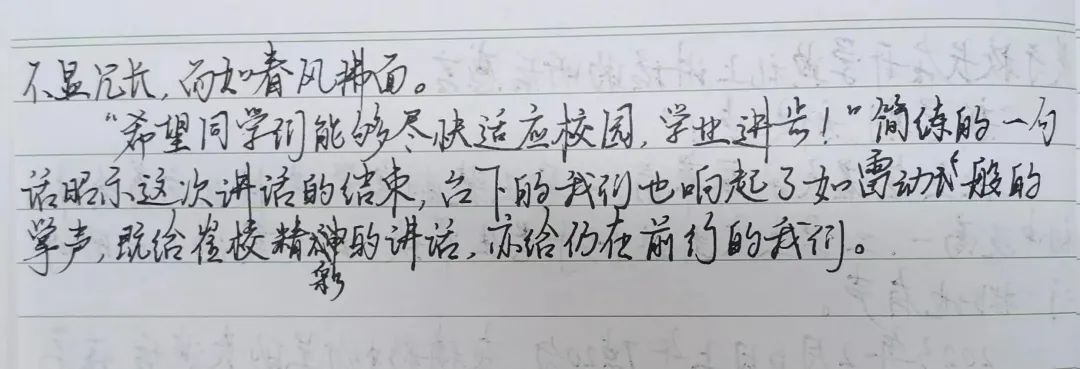 不显冗长，而如春风拂面。
“希望同学们能够尽快适应校园，学业进步！”简练的一句
话昭示这次讲话的结束，台下的我们也响起了如雷动般的
掌声，既给崔校精彩的讲话，亦给仍在前行的我们。